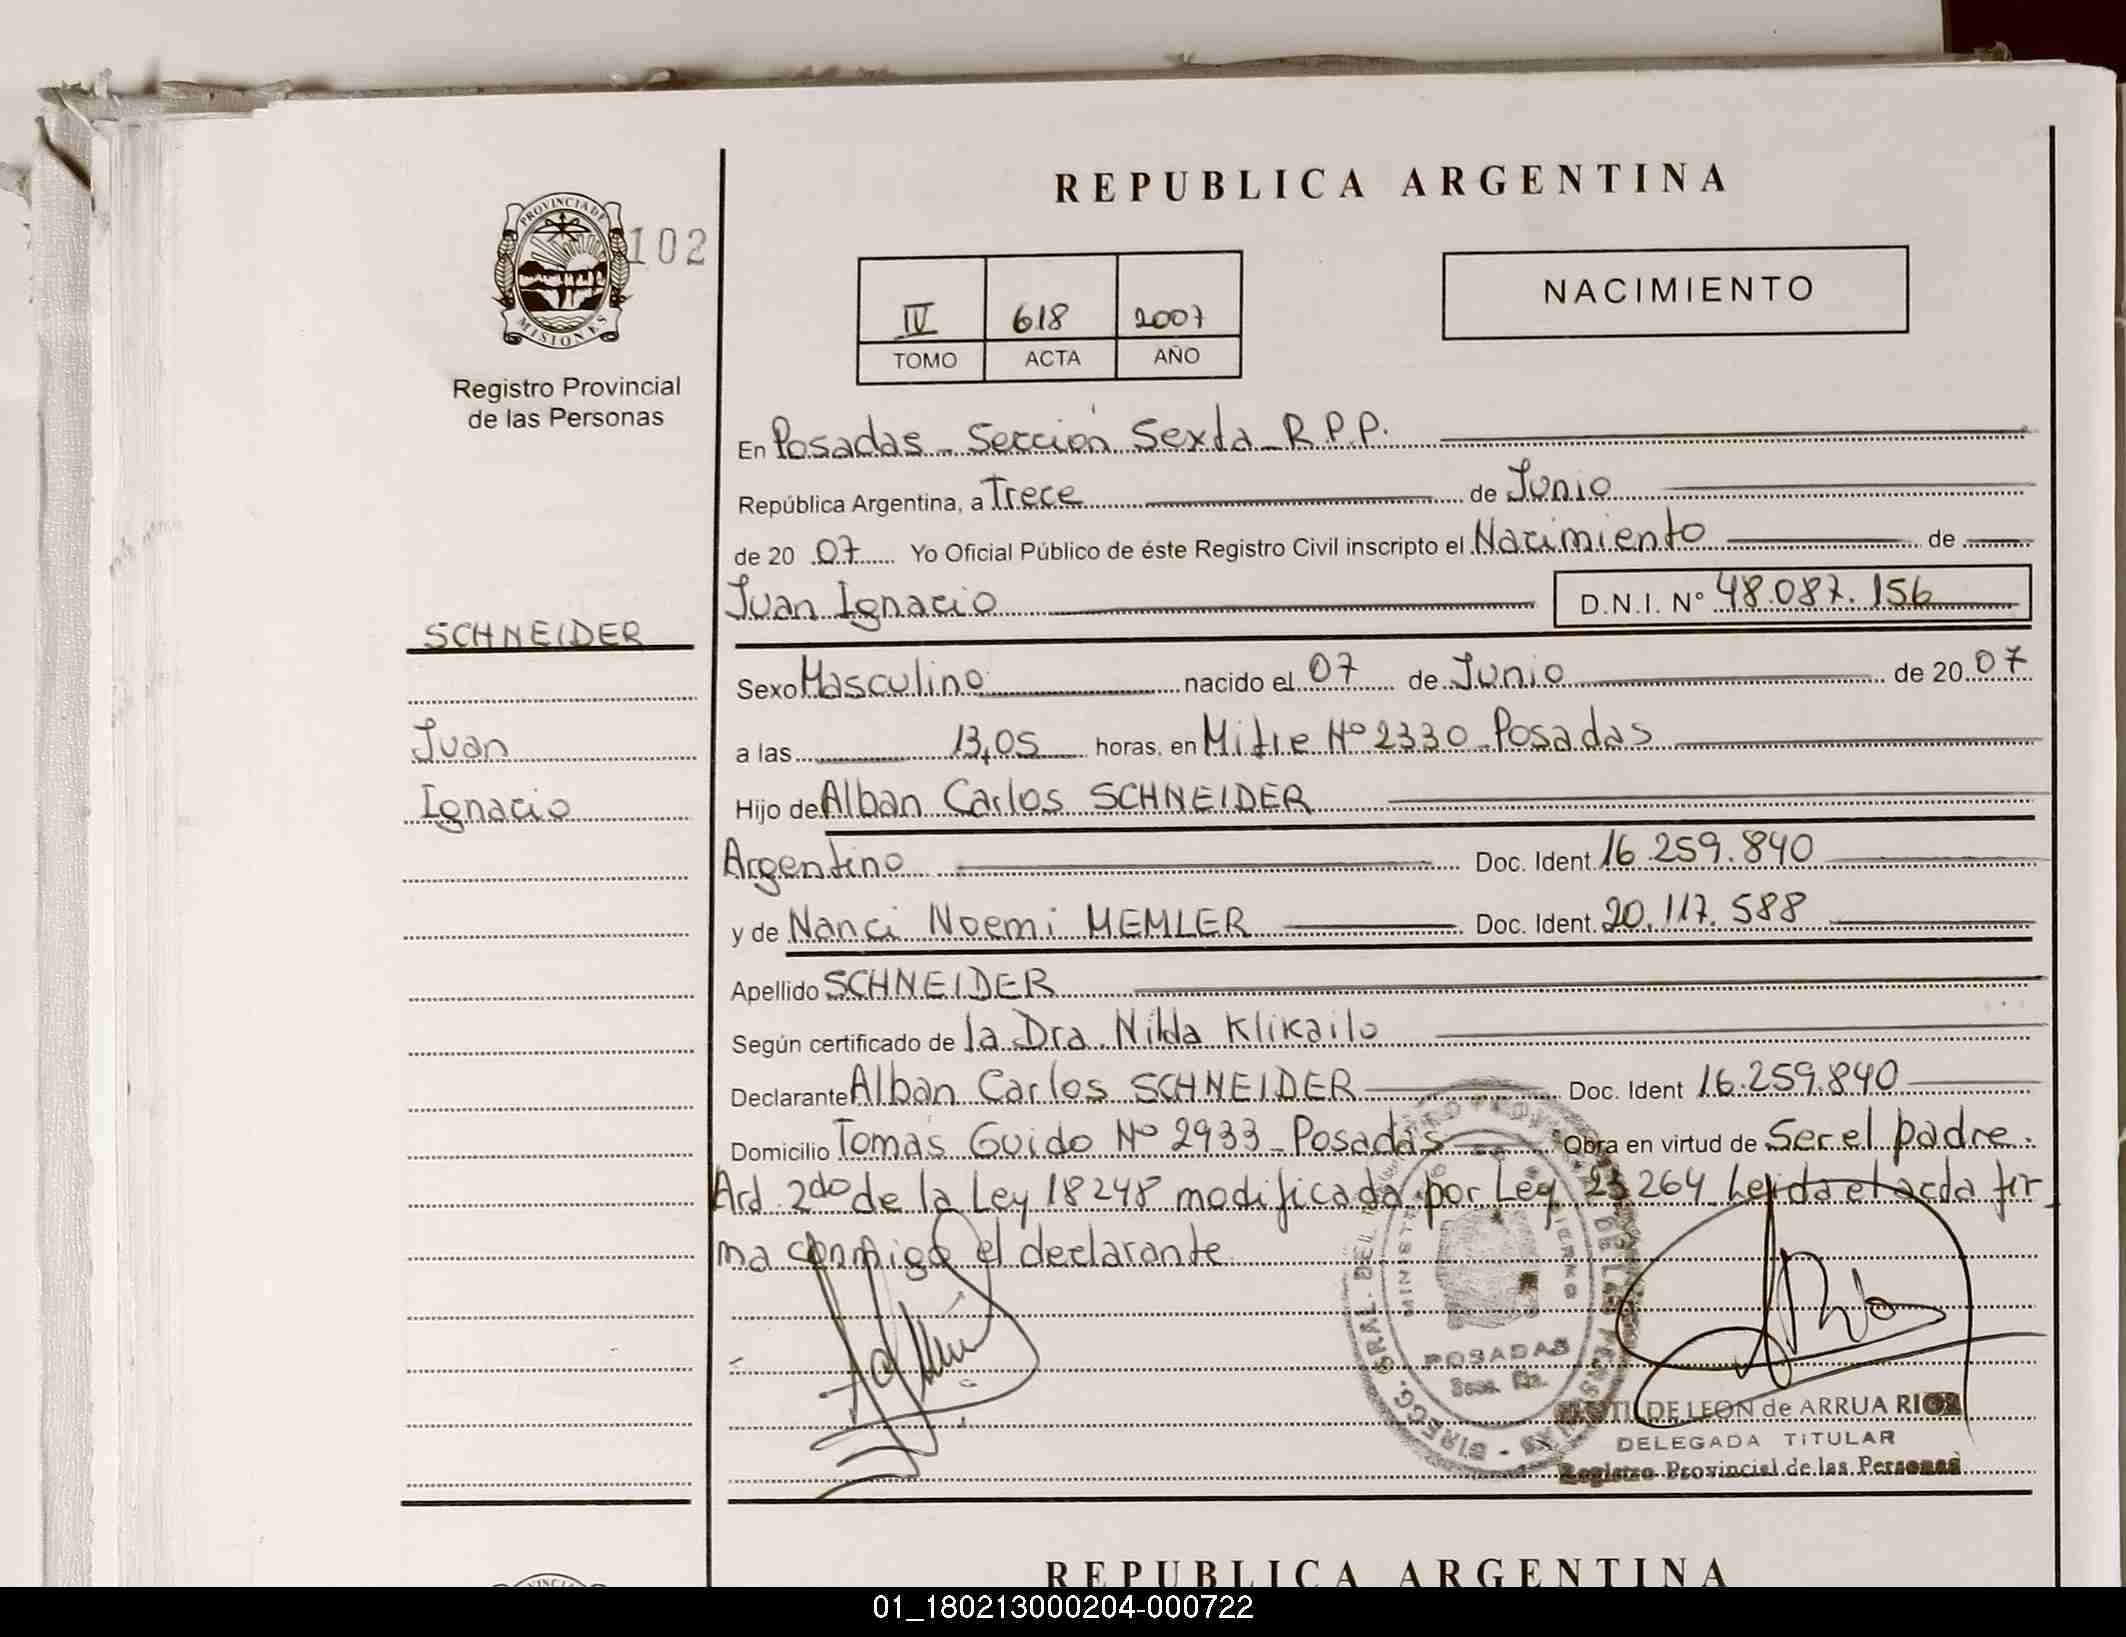 REPUBLICA ARGENTINA
PROVINCIA DE
MISIONES
102
Registro Provincial
de las Personas
NACIMIENTO
IV 618 2007
TOMO ACTA AÑO
En Posadas - Sección Sexta R.P.P.
República Argentina, a Trece de Junio
de 20 07 Yo Oficial Público de éste Registro Civil inscripto el Nacimiento de
Juan Ignacio D.N.I. N° 48.087.156
SCHNEIDER
Juan
Ignacio
Sexo Masculino nacido el 07 de Junio de 20 07
a las 13,05 horas, en Mitre Nº 2330 Posadas
Hijo de Alban Carlos SCHNEIDER
Argentino Doc. Ident. 16.259.840
y de Nanci Noemi MEMLER Doc. Ident. 20.117.588
Apellido SCHNEIDER
Según certificado de la Dra. Nilda Klikailo
Declarante Alban Carlos SCHNEIDER Doc. Ident 16.259.840
Domicilio Tomás Guido Nº 2933 - Posadas Obra en virtud de Ser el padre.
Art. 2do de la Ley 18248 modificada por Ley 23264 Leida el acta fir
ma conmigo el declarante
POSADAS
DE LEON de ARRUA RIOS
DELEGADA TITULAR
Registro Provincial de las Personas
REPUBLICA ARGENTINA
01_180213000204-000722